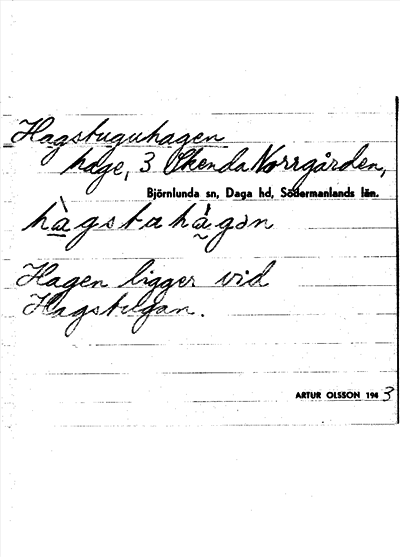 Hagstuguhagen
hage, 3 Skenda Norrgården,
Björnlunda sn, Daga hd, Södermanlands län.
hàgstuhàgən
Hagen ligger vid
Hagstugan.
ARTUR OLSSON 1943